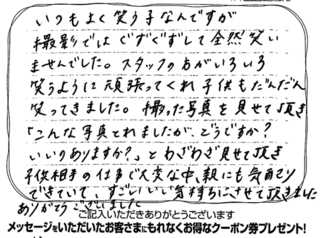 いつもよく笑う子なんですが
撮影ではぐずぐずして全然笑い
ませんでした。スタッフの方がいろいろ
笑うように頑張ってくれ子供もだんだん
笑ってきました。撮った写真を見せて頂き
「こんな写真とれましたが、どうですか?
いいのありますか?」とわざわざ見せて頂き
子供相手の仕事で大変な中、親にも気配り
できていて、すごくいい気持ちにさせて頂きました
ありがとうございました
ご記入いただきありがとうございます
メッセージをいただいたお客さまにもれなくお得なクーポン券プレゼント!